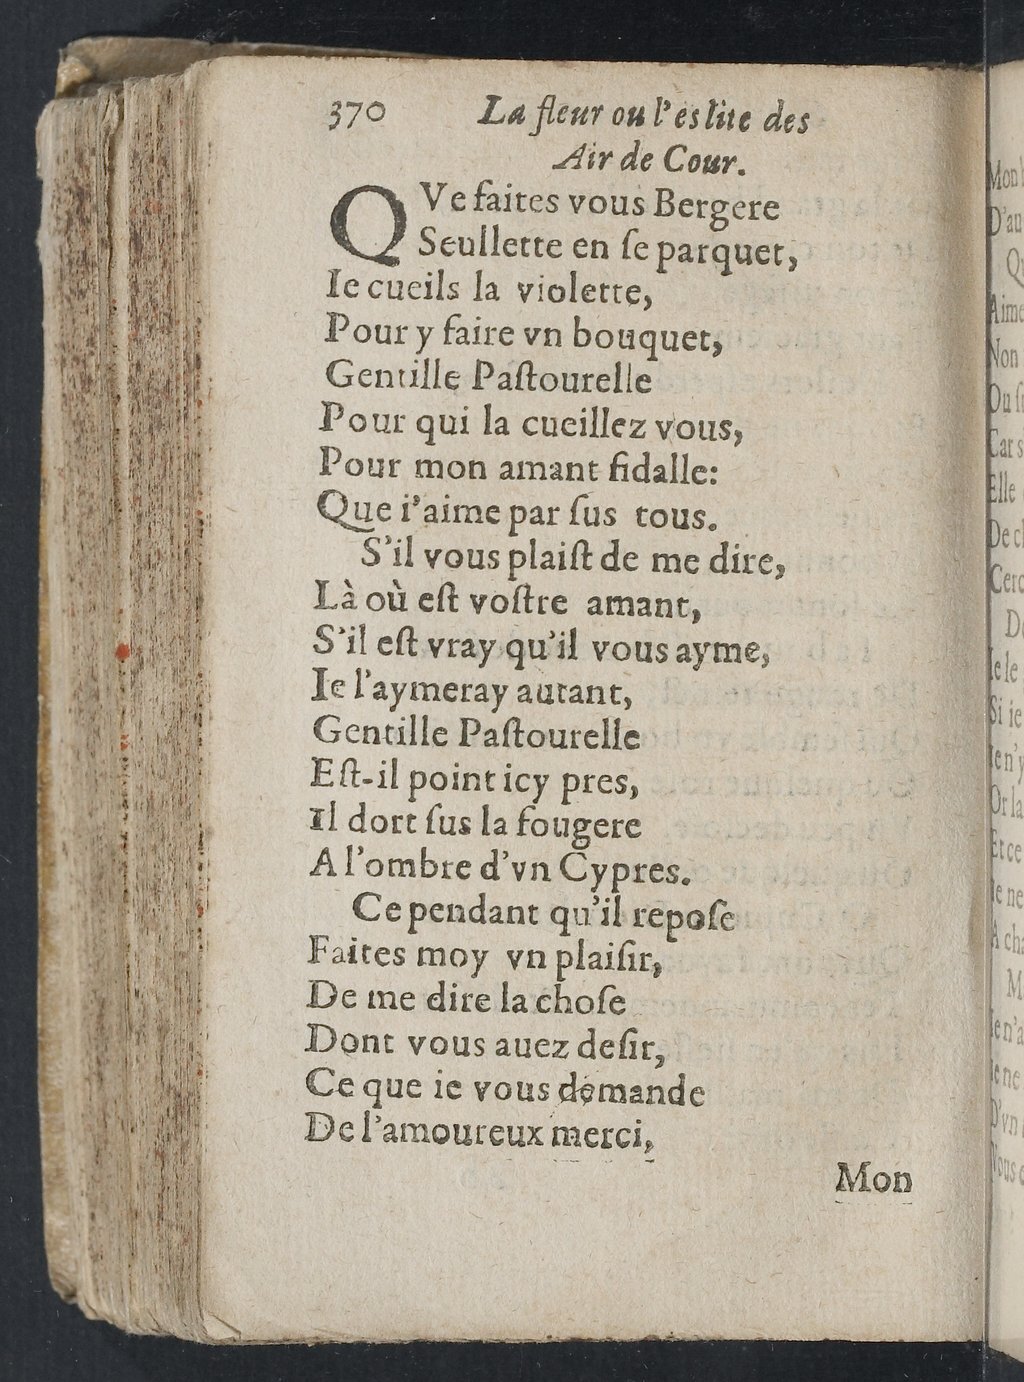 370 La fleur ou l'eslite des
Air de Cour.
QVe faites vous Bergere
Seullette en ſe parquet,
Ie cueils la violette,
Pour y faire vn bouquet,
Gentille Paſtourelle
Pour qui la cueillez vous,
Pour mon amant fidalle:
Que i'aime par ſus tous.
S'il vous plaiſt de me dire,
Là où eſt voſtre amant,
S'il eſt vray qu'il vous ayme,
Ie l'aymeray autant,
Gentille Paſtourelle
Eſt-il point icy pres,
Il dort ſus la fougere
A l'ombre d'vn Cypres.
Ce pendant qu'il repoſe
Faites moy vn plaiſir,
De me dire la choſe
Dont vous auez deſir,
Ce que ie vous demande
De l'amoureux merci,
Mon